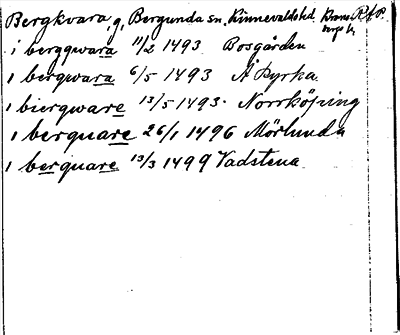 Bergkvara, g, Bergunda sn, Kinnevalds hd, Kronobergs l, RAP.
i bergqwara 11/2 1493 Bosgården
i bergwara 6/5 1493 Å kyrka
i biergware 13/5 1493. Norrköping
i berquare 26/1 1496 Mörlunda
i berquare 13/3 1499 Vadstena